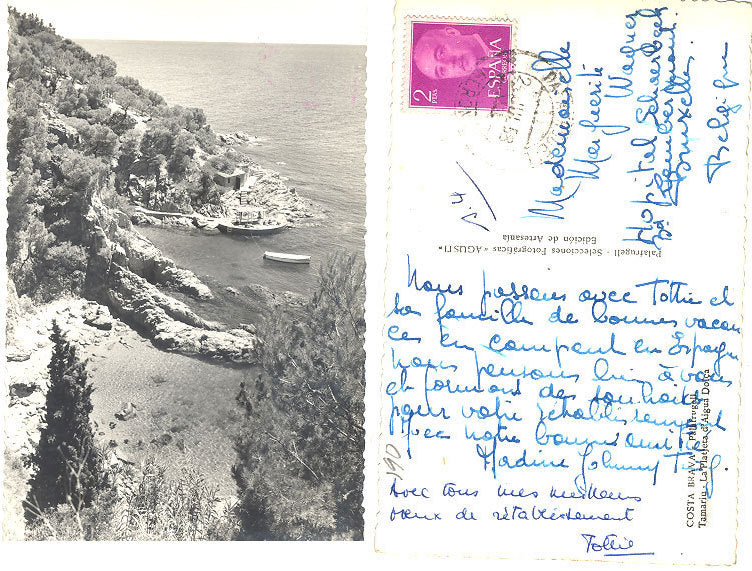 2
PTAS
ESPAÑA
CORREOS
Mademoiselle
Marguerite Wagner
Hopital Schaerbeek
Bruxelles.
Belgique
Palafrugell - Selecciones Fotográficas «AGUSTI»
Edición de Artesanía
Nous passons avec Tottie et
sa famille de bonnes vacan
ces en campant en Espagne
nous pensons bien à vous
et formons des souhaits
pour votre rétablissement
Avec notre bonne amitié
Nadine Johnny
Avec tous mes meilleurs
voeux de rétablissement
Tottie
190
COSTA BRAVA - Palafrugell
Tamariu - La Platjeta d'Aigua Dolça